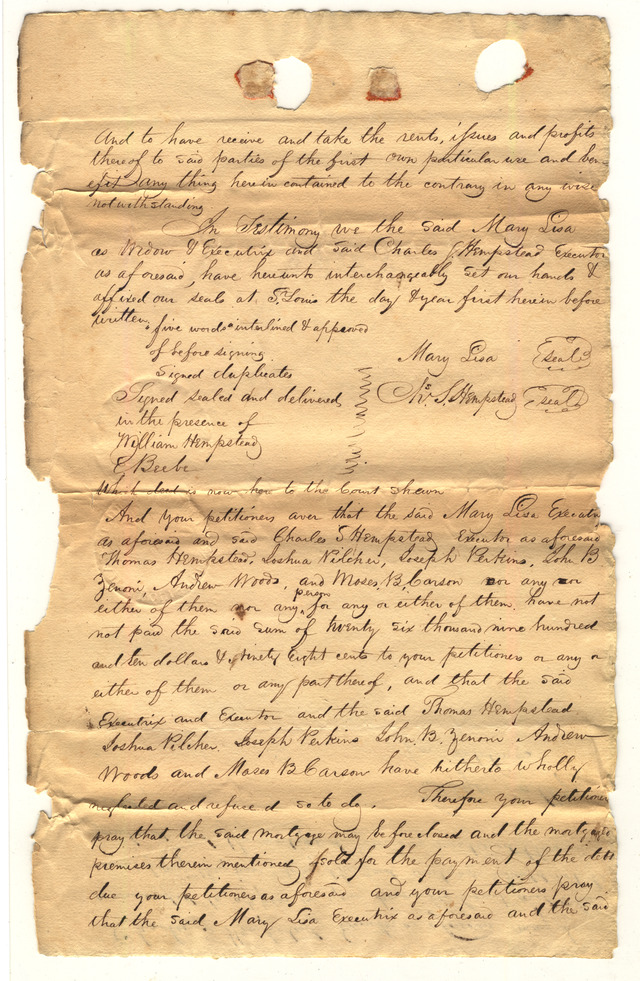 And to have receive and take the rents, issues and profits
thereof to said parties of the first own particular use and ben-
efit any thing herein contained to the contrary in any wise
notwithstanding
In Testimony we the said Mary Lisa
as Widow & Executrix and said Charles S Hempstead Executor
as aforesaid, have hereunto interchangeably set our hands &
affixed our seals at St Louis the day & year first herein before
written, five words interlined & approved
of before signing
Signed duplicates
Mary Lisa seal
Signed sealed and delivered
Chs. S. Hempstead seal
in the presence of
William Hempstead
E Beebe
Which deed is now here to the Court shewn
And your petitioners aver that the said Mary Lisa Executrix
as aforesaid and said Charles S Hempstead Executor as aforesaid
Thomas Hempstead, Joshua Pilcher, Joseph Perkins, John B
Zenoni, Andrew Woods, and Moses B. Carson nor any nor
either of them nor any person for any or either of them, have not
not paid the said sum of twenty six thousand nine hundred
and ten dollars & ninety eight cents to your petitioners or any or
either of them or any part thereof, and that the said
Executrix and Executor and the said Thomas Hempstead
Joshua Pilcher, Joseph Perkins John. B. Zenoni Andrew
Woods and Moses B Carson have hitherto wholly
neglected and refused so to do. Therefore your petitioners
pray that the said mortgage may be foreclosed and the mortgaged
premises therein mentioned sold for the payment of the debt
due your petitioners as aforesaid and your petitioners pray
that the said Mary Lisa Executrix as aforesaid and the said